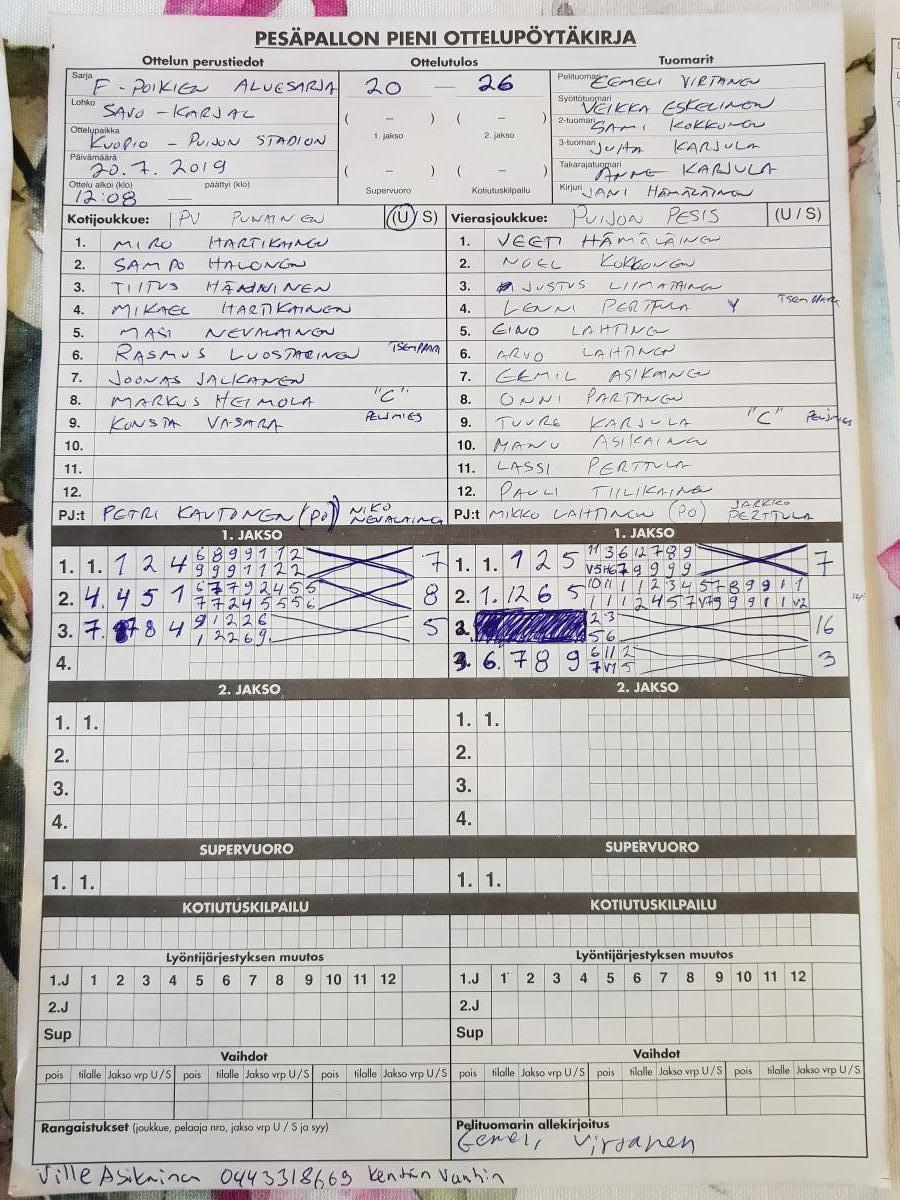 PESÄPALLON PIENI OTTELUPÖYTÄKIRJA
Ottelun perustiedot Ottelutulos Tuomarit
Sarja F-POIKIEN ALUESARJA 20 — 26 Pelituomari EEMELI VIRTANEN
Lohko SAVO-KARJAL ( – ) ( – ) Syöttötuomari VEIKKA ESKELINEN
Ottelupaikka KUOPIO - PUIJON STADION 1. jakso 2. jakso 2-tuomari SAMI KOKKONEN
3-tuomari JUHA KARJULA
Päivämäärä 20.7.2019 ( – ) ( – ) Takarajatuomari ANNE KARJULA
Ottelu alkoi (klo) päättyi (klo) Supervuoro Kotiutuskilpailu
12:08 — Kirjuri JANI HÄMÄLÄINEN
Kotijoukkue: IPV PUNAINEN (U/S) Vierasjoukkue: PUIJON PESIS (U/S)
1. MIRO HARTIKAINEN 1. VEETI HÄMÄLÄINEN
2. SAMPO HALONEN 2. NOEL KOKKONEN
3. TIITUS HÄNNINEN 3. JUSTUS LIIMATAINEN
4. MIKAEL HARTIKAINEN 4. LENNI PERTTULA TSEMPPARI
5. MASI NEVALAINEN 5. EINO LAHTINEN
6. RASMUS LUOSTARINEN TSEMPPARI 6. ARVO LAHTINEN
7. JOONAS JALKANEN 7. EEMIL ASIKAINEN
8. MARKUS HEIMOLA "C" 8. ONNI PARTANEN
9. KONSTA VASARA PELIMIES 9. TUURE KARJULA "C" PELIMIES
10. 10. MANU ASIKAINEN
11. 11. LASSI PERTTULA
12. 12. PAULI TIILIKAINEN
PJ:t PETRI KAUTONEN (PO) NIKO NEVALAINEN PJ:t MIKKO LAHTINEN (PO) JARKKO PERTTULA
1. JAKSO 1. JAKSO
1. 1. 1 2 4 6 8 9 9 1 1 2 7 1. 1. 1 2 5 11 3 6 12 7 8 9 7
9 9 9 1 1 2 2
2. 4. 4 5 1 6 7 7 9 2 4 5 5 8 2. 1. 12 6 5 10 11 1 1 2 3 4 5 7 8 9 9 1 1
7 7 2 4 5 5 5 6 1 1 1 2 4 5 7 V7 9 9 9 1 1 V2
3. 7. 7 8 4 9 1 2 2 6 5 2 3 16
1 2 2 6 9 5 6
4. 3. 6. 7 8 9 6 11 2 3
7 V1 5
2. JAKSO 2. JAKSO
1. 1. 1. 1.
2. 2.
3. 3.
4. 4.
SUPERVUORO SUPERVUORO
1. 1. 1. 1.
KOTIUTUSKILPAILU KOTIUTUSKILPAILU
Lyöntijärjestyksen muutos Lyöntijärjestyksen muutos
1.J 1 2 3 4 5 6 7 8 9 10 11 12 1.J 1 2 3 4 5 6 7 8 9 10 11 12
2.J 2.J
Sup Sup
Vaihdot Vaihdot
pois tilalle Jakso vrp U/S pois tilalle Jakso vrp U/S pois tilalle Jakso vrp U/S pois tilalle Jakso vrp U/S pois tilalle Jakso vrp U/S pois tilalle Jakso vrp U/S
Rangaistukset (joukkue, pelaaja nro, jakso vrp U / S ja syy) Pelituomarin allekirjoitus
Eemeli Virtanen
Ville Asikainen 0443318669 kentän vanhin